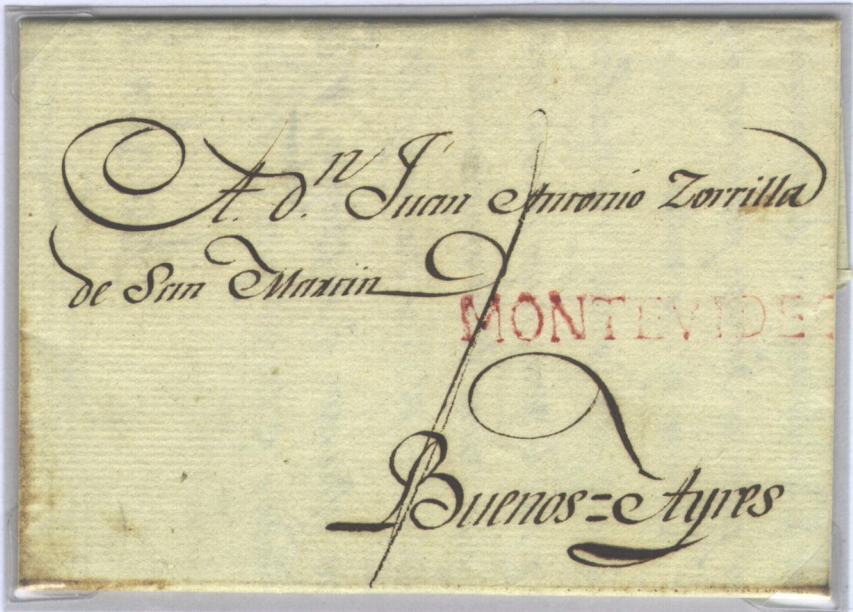 A. d.n Juan Antonio Zorrilla
de San Martin
MONTEVIDEO
Buenos=Ayres